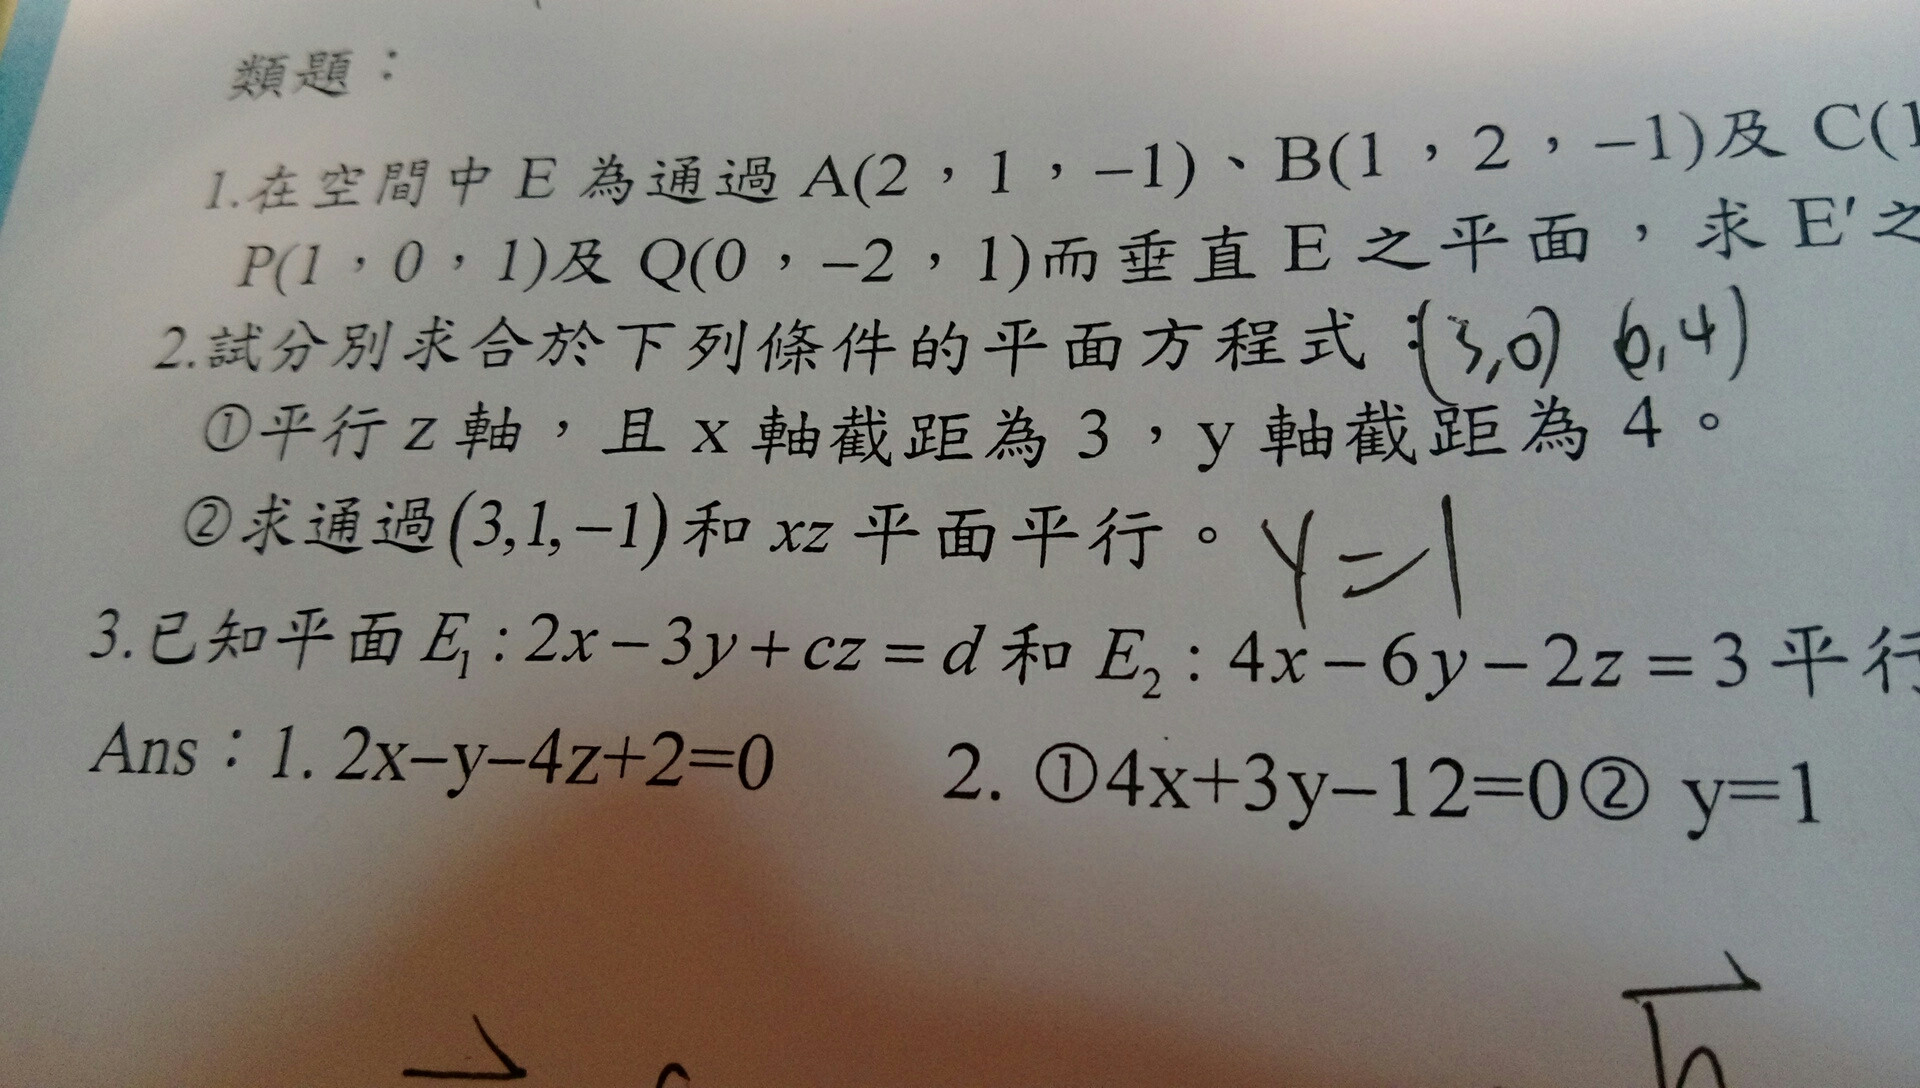 類題：
1.在空間中 E 為通過 A(2，1，−1)、B(1，2，−1)及 C(1
P(1，0，1)及 Q(0，−2，1)而垂直 E 之平面，求 E′之
2.試分別求合於下列條件的平面方程式：(3,0) 0,4)
①平行 z 軸，且 x 軸截距為 3，y 軸截距為 4。
②求通過(3,1,−1)和 xz 平面平行。 y=1
3.已知平面 E₁:2x−3y+cz=d 和 E₂:4x−6y−2z=3 平行
Ans：1. 2x−y−4z+2=0 2. ①4x+3y−12=0② y=1